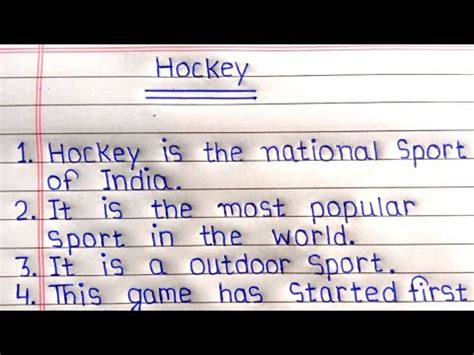 Hockey
1. Hockey is the national Sport
of India.
2. It is the most popular
Sport in the world.
3. It is a outdoor Sport.
4. This game has Started first